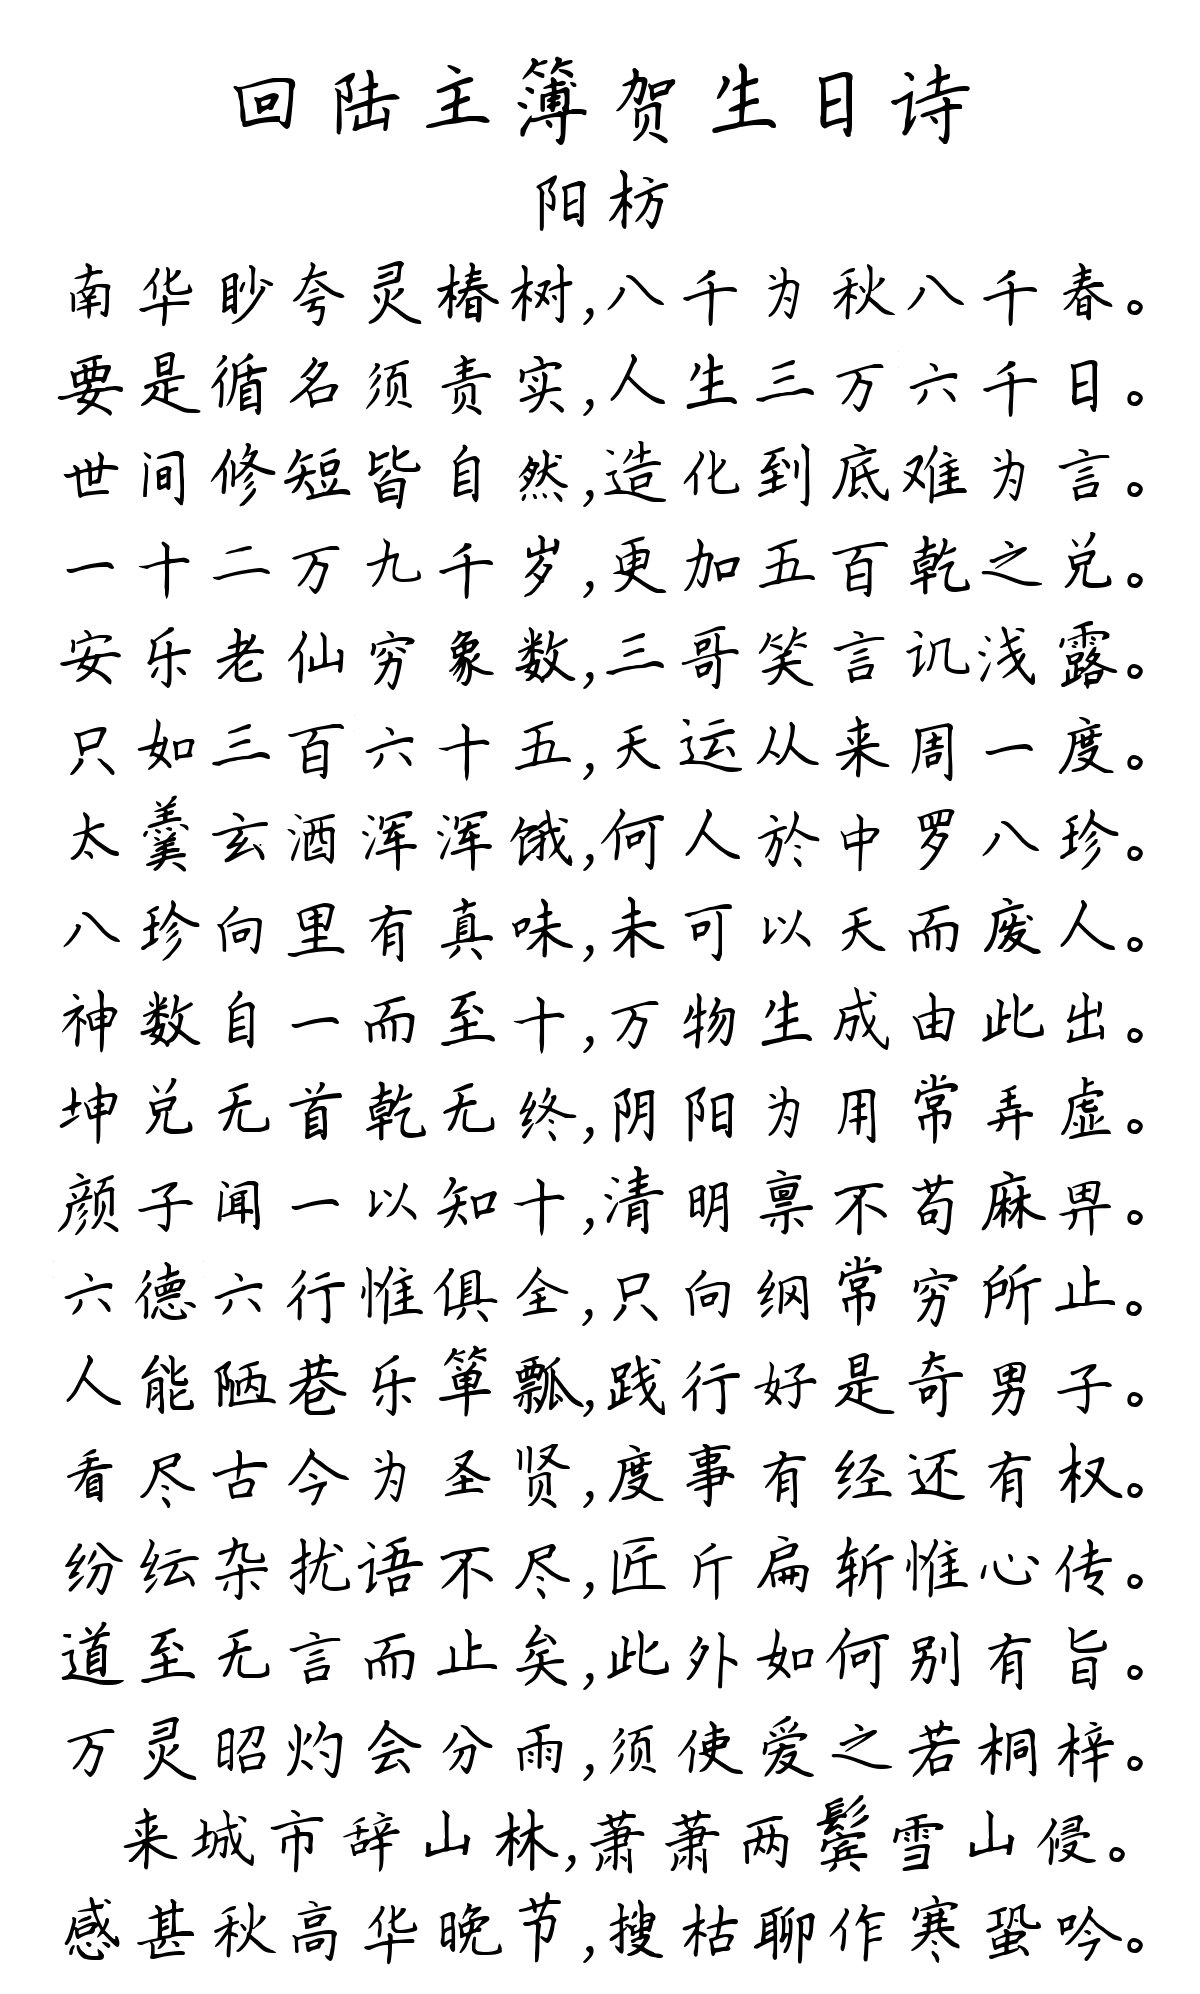 回陆主簿贺生日诗
阳枋
南华眇夸灵椿树,八千为秋八千春。
要是循名须责实,人生三万六千日。
世间修短皆自然,造化到底难为言。
一十二万九千岁,更加五百乾之兑。
安乐老仙穷象数,三哥笑言讥浅露。
只如三百六十五,天运从来周一度。
太羹玄酒浑浑饿,何人於中罗八珍。
八珍向里有真味,未可以天而废人。
神数自一而至十,万物生成由此出。
坤兑无首乾无终,阴阳为用常弄虚。
颜子闻一以知十,清明禀不苟麻畀。
六德六行惟俱全,只向纲常穷所止。
人能陋巷乐箪瓢,践行好是奇男子。
看尽古今为圣贤,度事有经还有权。
纷纭杂扰语不尽,匠斤扁斩惟心传。
道至无言而止矣,此外如何别有旨。
万灵昭灼会分雨,须使爱之若桐梓。
来城市辞山林,萧萧两鬓雪山侵。
感甚秋高华晚节,搜枯聊作寒蛩吟。